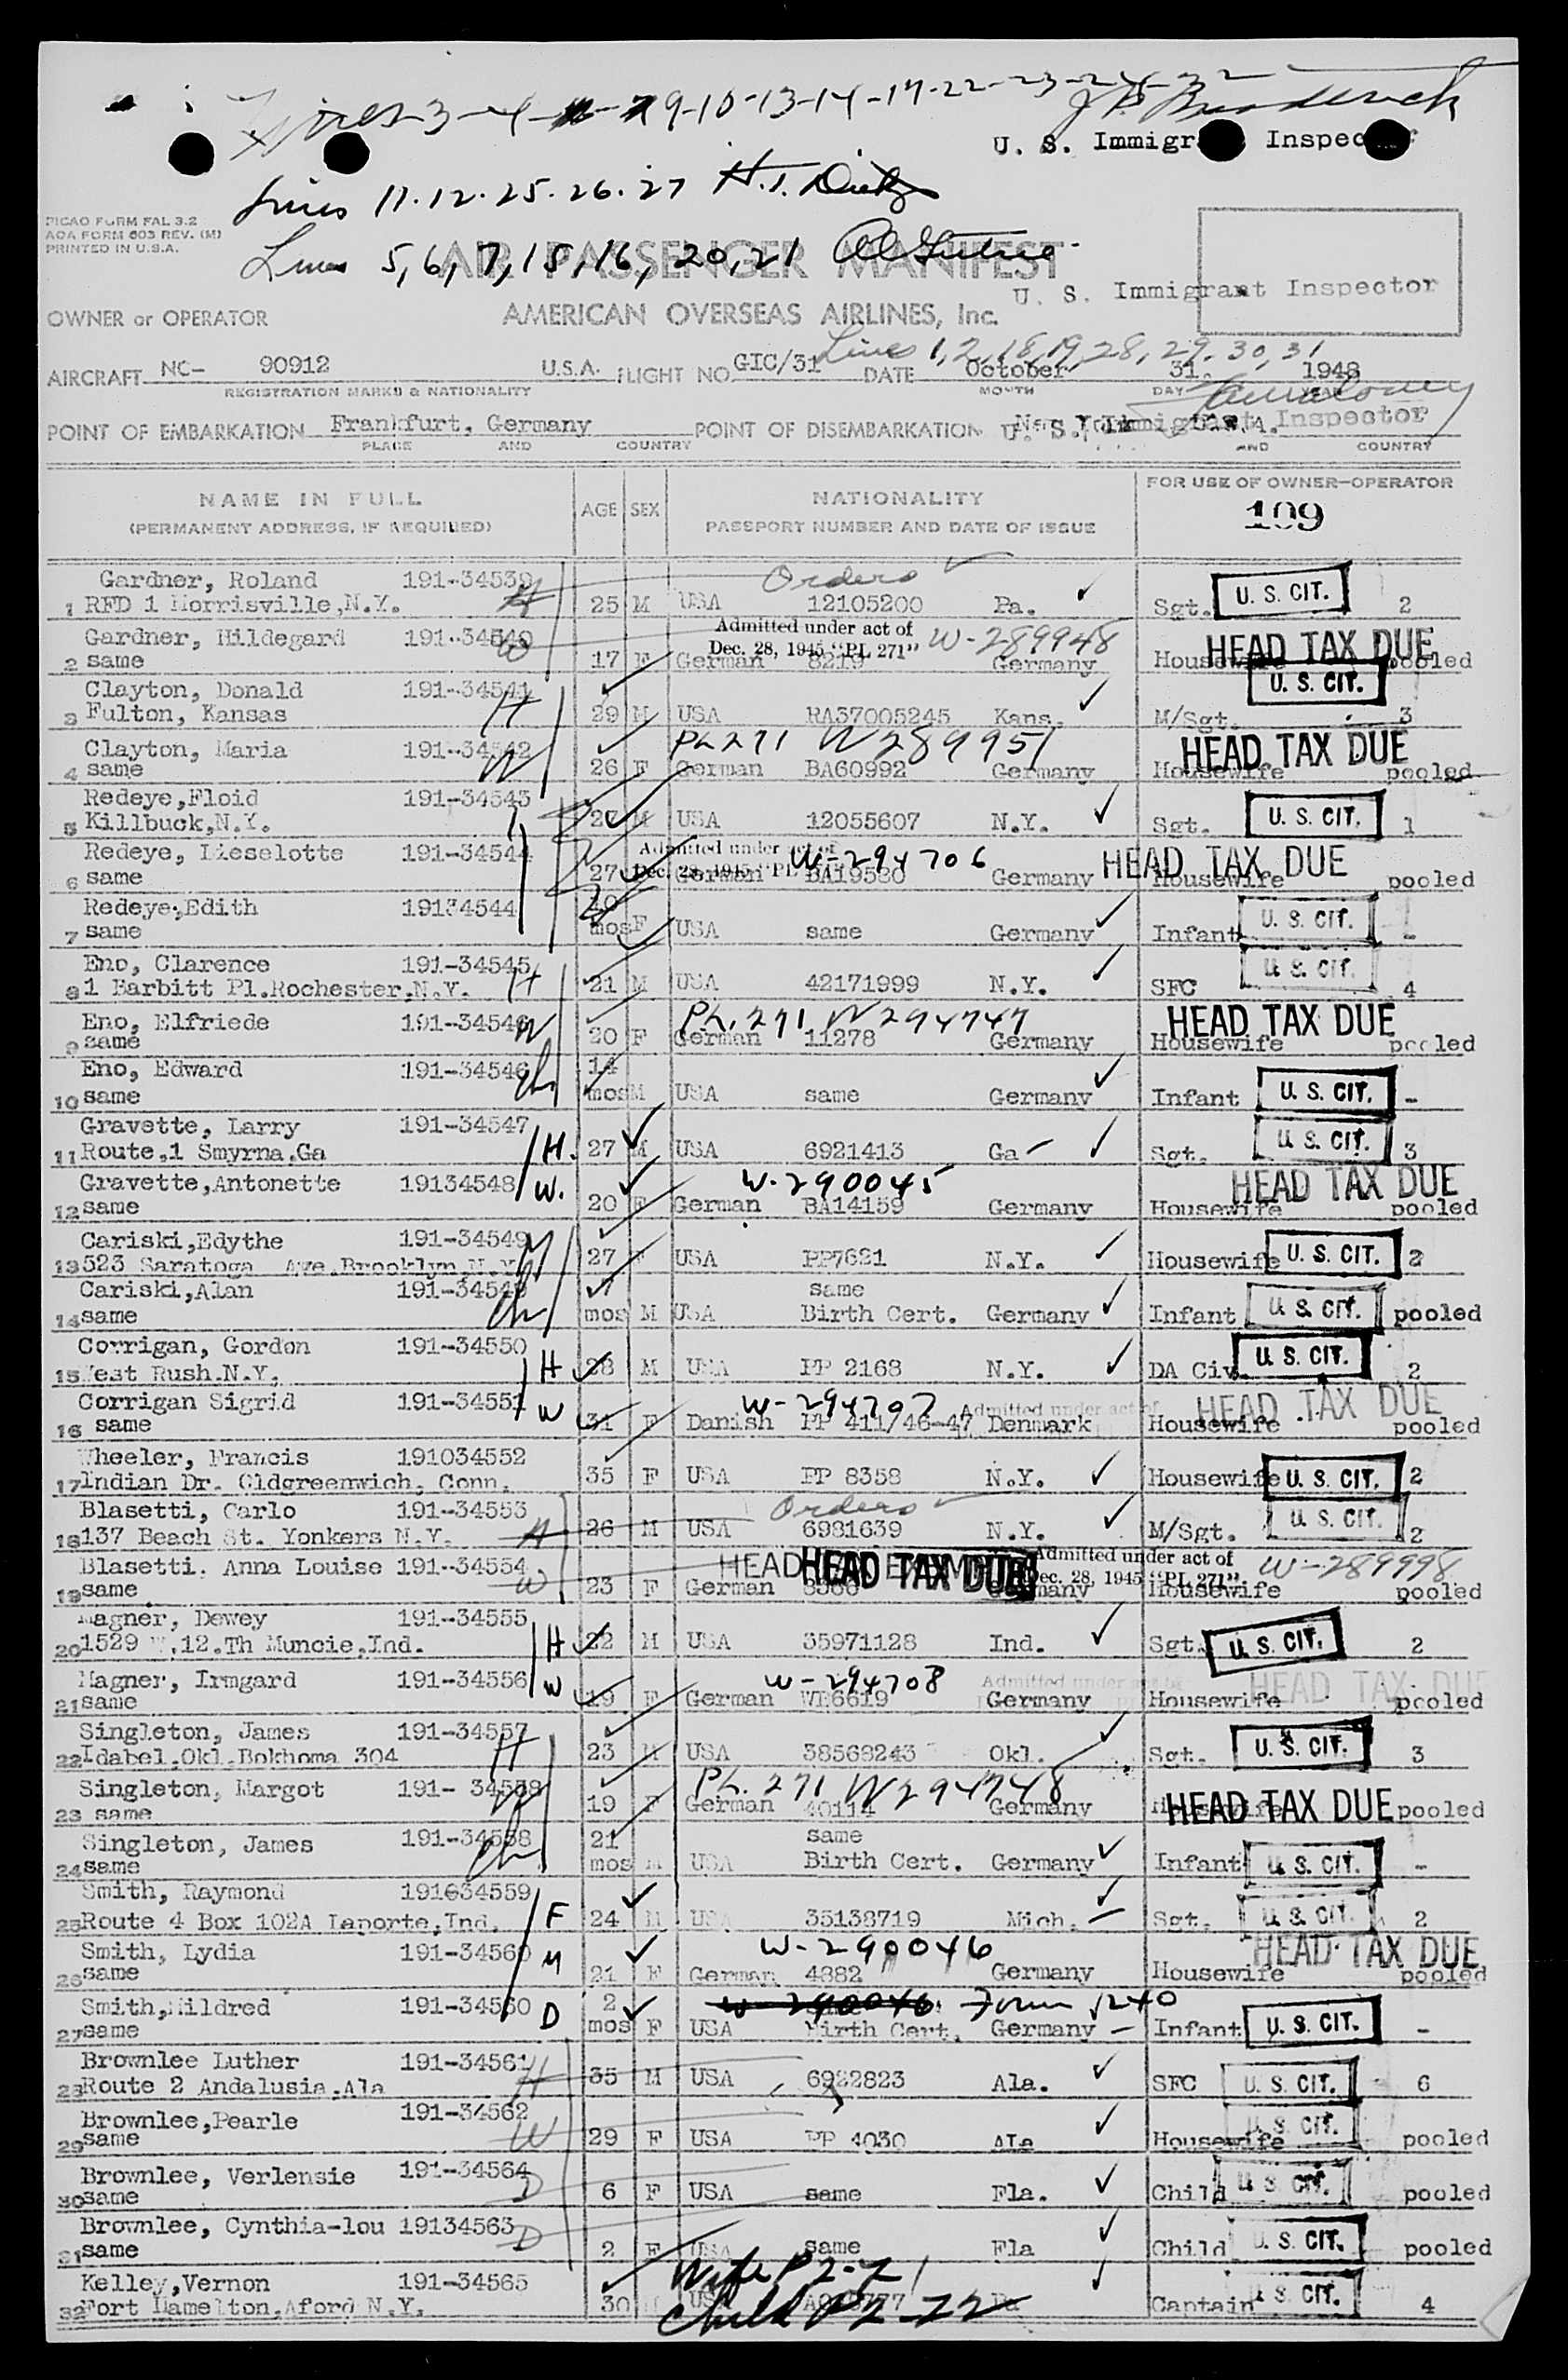 Lines 3-4- 9-10-13-14-17-22-23-24-32
U. S. Immigrant Inspector
Lines 11.12.25.26.27
PICAO FORM FAL 3.2
AOA FORM 603 REV. (M)
PRINTED IN U.S.A.
Lines 5,6,7,15,16,20,21
AIR PASSENGER MANIFEST
U. S. Immigrant Inspector
OWNER or OPERATOR AMERICAN OVERSEAS AIRLINES, Inc.
Lines 1,2,18,19,28,29,30,31
AIRCRAFT NC- 90912 U.S.A. FLIGHT NO. GIC/31 DATE October 31. 1948
REGISTRATION MARKS & NATIONALITY MONTH DAY YEAR
POINT OF EMBARKATION Frankfurt, Germany POINT OF DISEMBARKATION New York U.S.A.
U. S. Immigrant Inspector
PLACE AND COUNTRY AND COUNTRY
NAME IN FULL
(PERMANENT ADDRESS, IF REQUIRED)
AGE SEX
NATIONALITY
PASSPORT NUMBER AND DATE OF ISSUE
FOR USE OF OWNER-OPERATOR
109
Gardner, Roland 191-34539 H Orders
1 RFD 1 Morrisville,N.Y. 25 M USA 12105200 Pa. Sgt. U. S. CIT. 2
Gardner, Hildegard 191-34540 W Admitted under act of Dec. 28, 1945 "PL 271" W-289948 HEAD TAX DUE
2 same 17 F German 8219 Germany Housewife pooled
Clayton, Donald 191-34541 H U. S. CIT.
3 Fulton, Kansas 29 M USA RA37005245 Kans. M/Sgt. 3
Clayton, Maria 191-34542 W PL 271 W289951 HEAD TAX DUE
4 same 26 F German BA60992 Germany Housewife pooled
Redeye,Floid 191-34543
5 Killbuck,N.Y. M USA 12055607 N.Y. Sgt. U. S. CIT. 1
Redeye, Lieselotte 191-34544 Admitted under act of Dec. 28, 1945 "PL W-294706 HEAD TAX DUE
6 same 27 German BA19580 Germany Housewife pooled
Redeye,Edith 19134544 10
7 same mos F USA same Germany Infant U. S. CIT. -
Eno, Clarence 191-34545 H
8 1 Barbitt Pl.Rochester.N.Y. 21 M USA 42171999 N.Y. SFC U. S. CIT. 4
Eno, Elfriede 191-34546 W PL. 271 W294747 HEAD TAX DUE
9 same 20 F German 11278 Germany Housewife pooled
Eno, Edward 191-34546 ch 14
10 same mos M USA same Germany Infant U. S. CIT. -
Gravette, Larry 191-34547 H.
11 Route,1 Smyrna.Ga 27 M USA 6921413 Ga Sgt. U. S. CIT. 3
Gravette,Antonette 19134548 W. W-290045 HEAD TAX DUE
12 same 20 F German BA14159 Germany Housewife pooled
Cariski,Edythe 191-34549 M
13 523 Saratoga Ave.Brooklyn,N.Y. 27 F USA PP7621 N.Y. Housewife U. S. CIT. 2
Cariski,Alan 191-34549 ch 7 same
14 same mos M USA Birth Cert. Germany Infant U. S. CIT. pooled
Corrigan, Gordon 191-34550 H
15 West Rush.N.Y. 28 M USA PP 2168 N.Y. DA Civ. U. S. CIT. 2
Corrigan Sigrid 191-34551 W W-294707 Admitted under act of HEAD TAX DUE
16 same 31 F Danish PP 411/46-47 Denmark Housewife pooled
Wheeler, Francis 191034552
17 Indian Dr. Oldgreenwich, Conn. 35 F USA PP 8358 N.Y. Housewife U. S. CIT. 2
Blasetti, Carlo 191-34553 H Orders
18 137 Beach St. Yonkers N.Y. 26 M USA 6981639 N.Y. M/Sgt. U. S. CIT. 2
Blasetti. Anna Louise 191-34554 W HEAD TAX DUE Admitted under act of Dec. 28, 1945 "PL 271" W-289998
19 same 23 F German Germany Housewife pooled
Magner, Dewey 191-34555 H
20 1529 W.12.Th Muncie,Ind. 22 M USA 35971128 Ind. Sgt. U. S. CIT. 2
Magner, Irmgard 191-34556 W W-294708 Admitted under act HEAD TAX DUE
21 same 19 F German WE6619 Germany Housewife pooled
Singleton, James 191-34557 H
22 Idabel.Okl.Bokhoma 304 23 M USA 38568243 Okl. Sgt. U. S. CIT. 3
Singleton, Margot 191- 34558 W PL. 271 W294748 HEAD TAX DUE
23 same 19 F German 40114 Germany Housewife pooled
Singleton, James 191-34558 ch 21 same
24 same mos M USA Birth Cert. Germany Infant U. S. CIT. -
Smith, Raymond 191634559 F
25 Route 4 Box 102A Laporte,Ind. 24 M USA 35138719 Mich. Sgt. U. S. CIT. 2
Smith, Lydia 191-34560 M W-290046 HEAD TAX DUE
26 same 21 F German 4882 Germany Housewife pooled
Smith,Mildred 191-34560 D 2 W-290046 Form 1240
27 same mos F USA Birth Cert. Germany Infant U. S. CIT. -
Brownlee Luther 191-34561 H
28 Route 2 Andalusia.Ala 35 M USA 6922823 Ala. SFC U. S. CIT. 6
Brownlee,Pearle 191-34562 W
29 same 29 F USA PP 4030 Ala Housewife U. S. CIT. pooled
Brownlee, Verlensie 191-34564 D
30 same 6 F USA same Fla. Child U. S. CIT. pooled
Brownlee, Cynthia-lou 19134563 D
31 same 2 F USA same Fla Child U. S. CIT. pooled
Kelley,Vernon 191-34565 Wife P2-21
32 Fort Hamelton.Aford N.Y. 30 USA Captain U. S. CIT. 4
Child P2-22